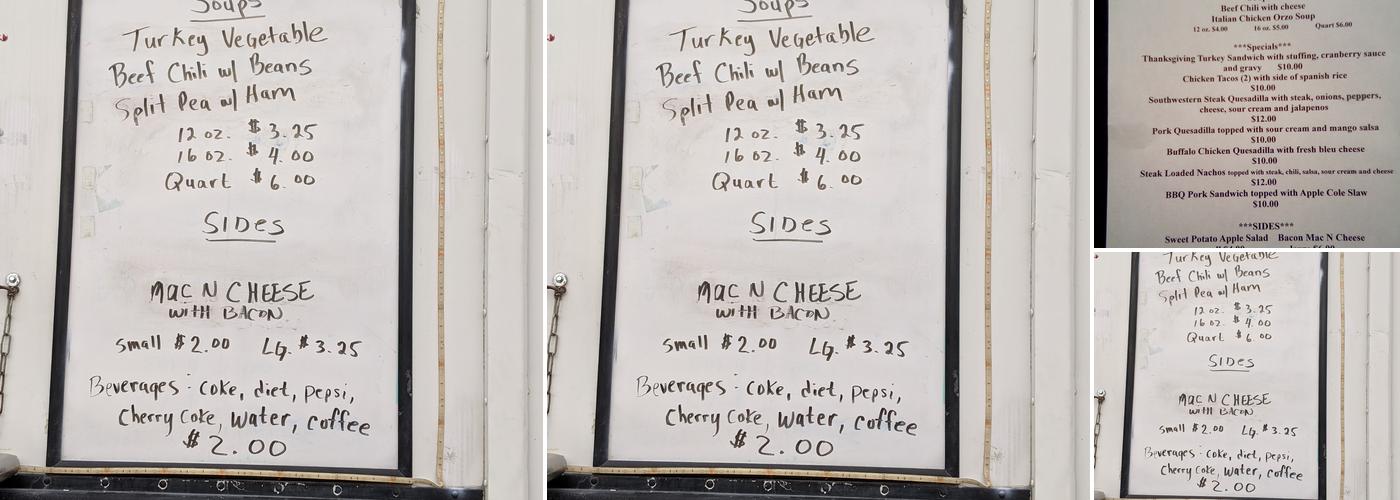 Soups
Turkey Vegetable
Beef Chili w/ Beans
Split Pea w/ Ham
12 oz. $ 3.25
16 oz. $ 4.00
Quart $ 6.00
SIDes
Mac N CHEESE
WITH BACON
Small $2.00 LG. $3.25
Beverages: coke, diet, pepsi,
Cherry Coke, Water, coffee
$ 2.00
Soups
Turkey Vegetable
Beef Chili w/ Beans
Split Pea w/ Ham
12 oz. $ 3.25
16 oz. $ 4.00
Quart $ 6.00
SIDes
Mac N CHEESE
WITH BACON
Small $2.00 LG. $3.25
Beverages: coke, diet, pepsi,
Cherry Coke, Water, coffee
$ 2.00
Beef Chili with cheese
Italian Chicken Orzo Soup
12 oz. $4.00 16 oz. $5.00 Quart $6.00
***Specials***
Thanksgiving Turkey Sandwich with stuffing, cranberry sauce
and gravy $10.00
Chicken Tacos (2) with side of spanish rice
$10.00
Southwestern Steak Quesadilla with steak, onions, peppers,
cheese, sour cream and jalapenos
$12.00
Pork Quesadilla topped with sour cream and mango salsa
$10.00
Buffalo Chicken Quesadilla with fresh bleu cheese
$10.00
Steak Loaded Nachos topped with steak, chili, salsa, sour cream and cheese
$12.00
BBQ Pork Sandwich topped with Apple Cole Slaw
$10.00
***SIDES***
Sweet Potato Apple Salad Bacon Mac N Cheese
Turkey Vegetable
Beef Chili w/ Beans
Split Pea w/ Ham
12 oz. $ 3.25
16 oz. $ 4.00
Quart $ 6.00
SIDes
Mac N CHEESE
WITH BACON
Small $2.00 LG. $3.25
Beverages: coke, diet, pepsi,
Cherry Coke, Water, coffee
$ 2.00